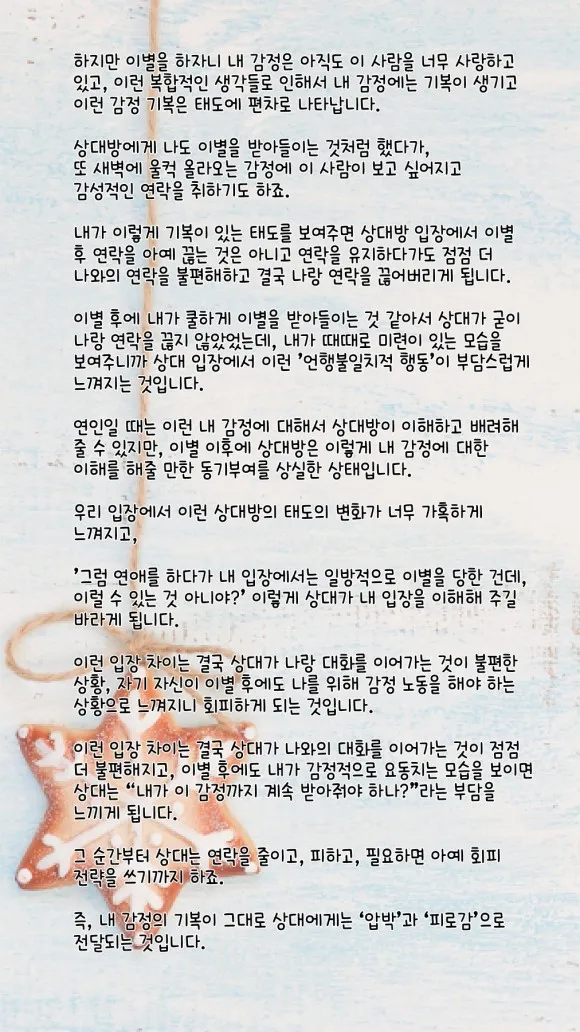 하지만 이별을 하자니 내 감정은 아직도 이 사람을 너무 사랑하고
있고, 이런 복합적인 생각들로 인해서 내 감정에는 기복이 생기고
이런 감정 기복은 태도에 편차로 나타납니다.
상대방에게 나도 이별을 받아들이는 것처럼 했다가,
또 새벽에 울컥 올라오는 감정에 이 사람이 보고 싶어지고
감성적인 연락을 취하기도 하죠.
내가 이렇게 기복이 있는 태도를 보여주면 상대방 입장에서 이별
후 연락을 아예 끊는 것은 아니고 연락을 유지하다가도 점점 더
나와의 연락을 불편해하고 결국 나랑 연락을 끊어버리게 됩니다.
이별 후에 내가 쿨하게 이별을 받아들이는 것 같아서 상대가 굳이
나랑 연락을 끊지 않았었는데, 내가 때때로 미련이 있는 모습을
보여주니까 상대 입장에서 이런 '언행불일치적 행동'이 부담스럽게
느껴지는 것입니다.
연인일 때는 이런 내 감정에 대해서 상대방이 이해하고 배려해
줄 수 있지만, 이별 이후에 상대방은 이렇게 내 감정에 대한
이해를 해줄 만한 동기부여를 상실한 상태입니다.
우리 입장에서 이런 상대방의 태도의 변화가 너무 가혹하게
느껴지고,
'그럼 연애를 하다가 내 입장에서는 일방적으로 이별을 당한 건데,
이럴 수 있는 것 아니야?' 이렇게 상대가 내 입장을 이해해 주길
바라게 됩니다.
이런 입장 차이는 결국 상대가 나랑 대화를 이어가는 것이 불편한
상황, 자기 자신이 이별 후에도 나를 위해 감정 노동을 해야 하는
상황으로 느껴지니 회피하게 되는 것입니다.
이런 입장 차이는 결국 상대가 나와의 대화를 이어가는 것이 점점
더 불편해지고, 이별 후에도 내가 감정적으로 요동치는 모습을 보이면
상대는 “내가 이 감정까지 계속 받아줘야 하나?”라는 부담을
느끼게 됩니다.
그 순간부터 상대는 연락을 줄이고, 피하고, 필요하면 아예 회피
전략을 쓰기까지 하죠.
즉, 내 감정의 기복이 그대로 상대에게는 ‘압박’과 ‘피로감’으로
전달되는 것입니다.